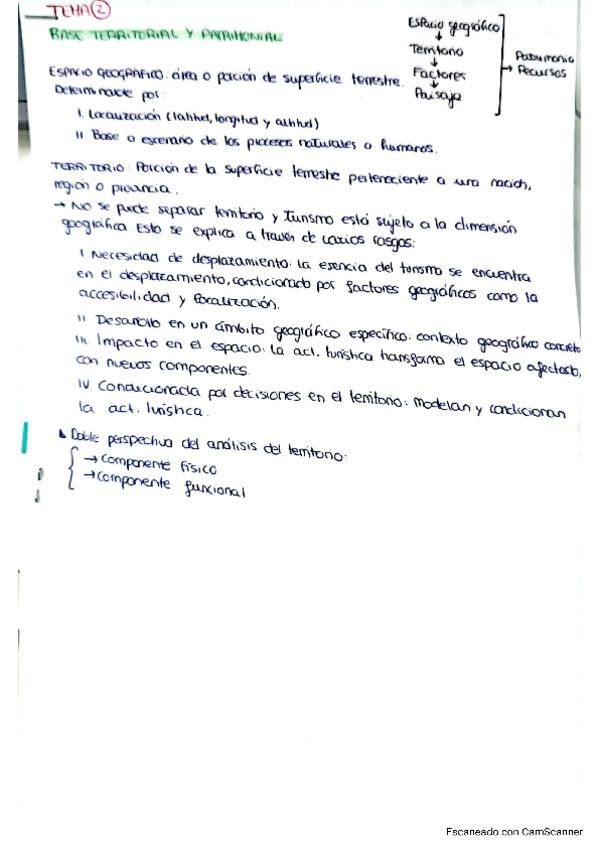 TEMA 2
BASE TERRITORIAL Y PATRIMONIAL
Espacio geográfico
↓
Territorio
↓
Factores
↓
Paisaje
→ Patrimonio
Recursos
ESPACIO GEOGRÁFICO: área o porción de superficie terrestre.
Determinable por:
I. Localización (latitud, longitud y altitud)
II. Base o escenario de los procesos naturales o humanos.
TERRITORIO: Porción de la superficie terrestre perteneciente a una nación,
región o provincia.
→ No se puede separar territorio y Turismo está sujeto a la dimensión
geográfica Esto se explica a través de varios rasgos:
I Necesidad de desplazamiento: la esencia del turismo se encuentra
en el desplazamiento, condicionado por factores geográficos como la
accesibilidad y focalización.
II Desarrollo en un ámbito geográfico específico: contexto geográfico concreto
III. Impacto en el espacio: la act. turística transforma el espacio afectado,
con nuevos componentes.
IV. Condicionada por decisiones en el territorio: modelan y condicionan
la act. turística.
↳ Doble perspectiva del análisis del territorio:
→ Componente físico
→ Componente funcional
Escaneado con CamScanner